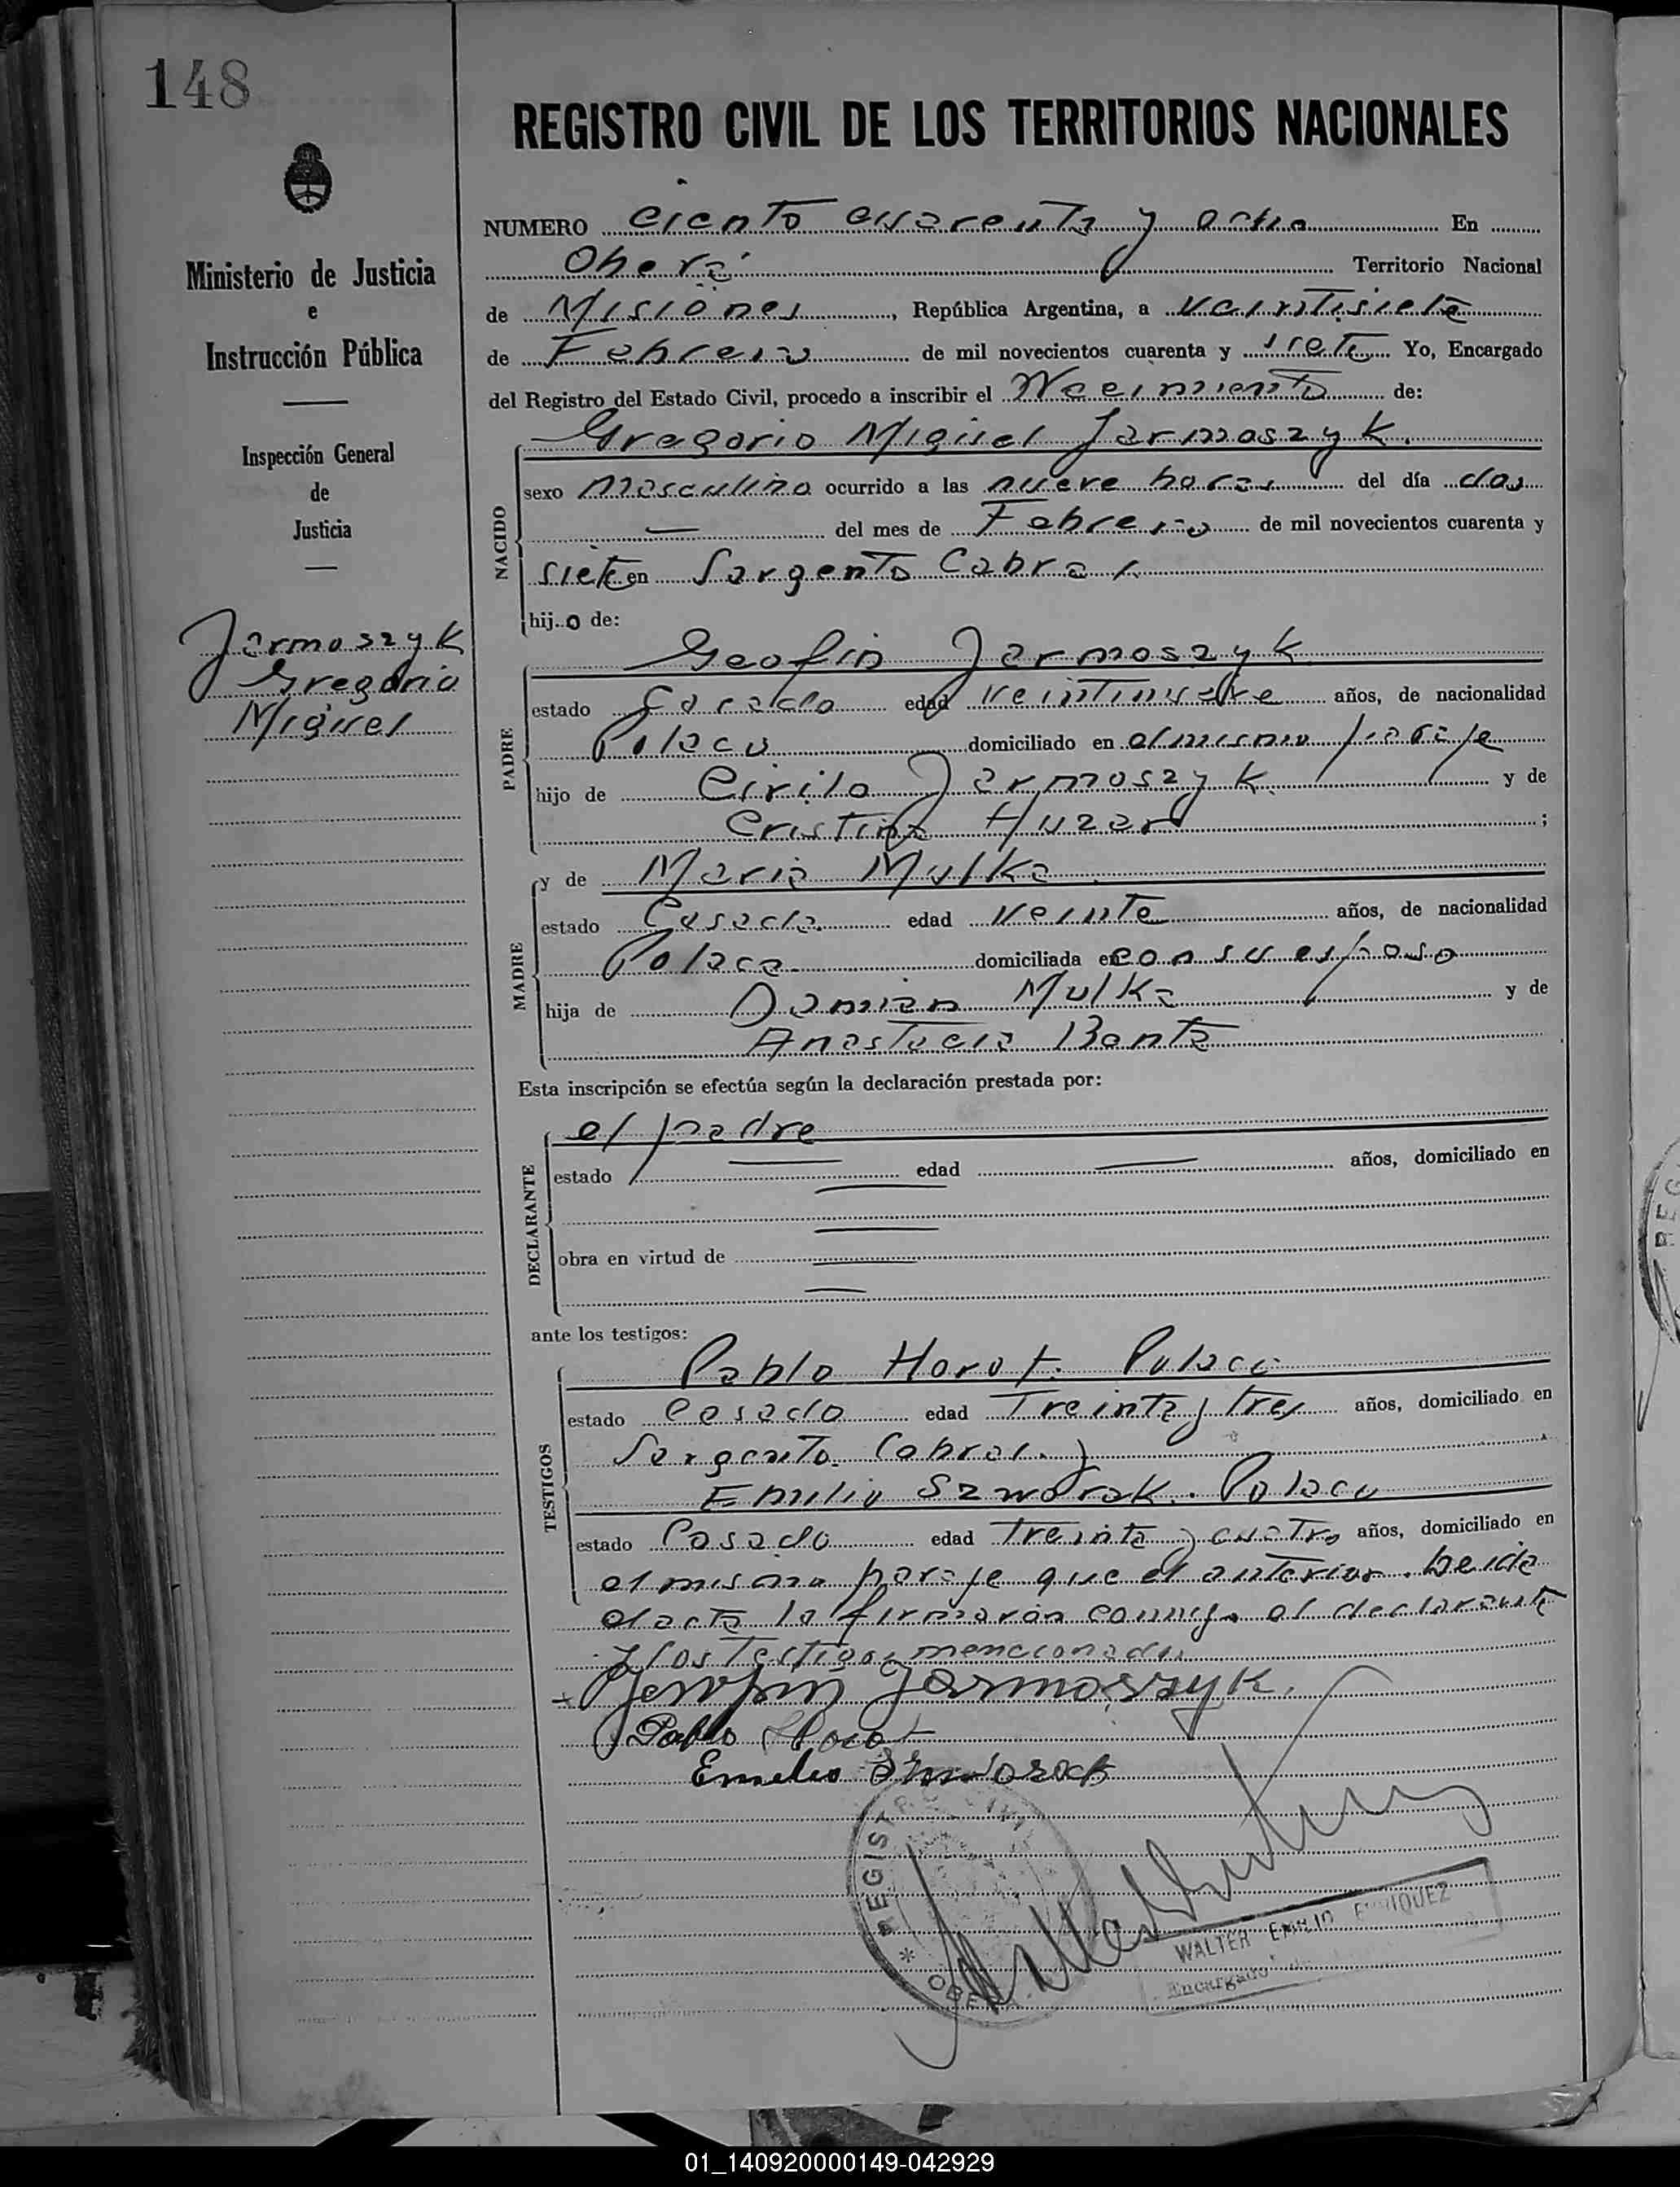 148
REGISTRO CIVIL DE LOS TERRITORIOS NACIONALES
NUMERO ciento cuarenta y ocho En
Oberá Territorio Nacional
de Misiones, República Argentina, a veintisiete
de Febrero de mil novecientos cuarenta y siete Yo, Encargado
del Registro del Estado Civil, procedo a inscribir el Nacimiento de:
Ministerio de Justicia
e
Instrucción Pública
Inspección General
de
Justicia
Jarmoszyk
Gregorio
Miguel
NACIDO
Gregorio Miguel Jarmoszyk.
sexo masculino ocurrido a las nueve horas del día dos
— del mes de Febrero de mil novecientos cuarenta y
siete en Sargento Cabral.
hijo de:
PADRE
Geofin Jarmoszyk
estado Casado edad veintinueve años, de nacionalidad
Polaco domiciliado en el mismo paraje
hijo de Cirilo Jarmoszyk y de
Cristina Huzar ;
MADRE
y de Maria Mulka
estado Casada. edad veinte años, de nacionalidad
Polaca domiciliada en con su esposo
hija de Damian Mulka y de
Anastacia Banta
Esta inscripción se efectúa según la declaración prestada por:
DECLARANTE
el padre
estado — edad — años, domiciliado en
obra en virtud de
ante los testigos:
TESTIGOS
Pablo Horot. Polaco
estado Casado edad Treinta y tres años, domiciliado en
Sargento Cabral. y
Emilio Szworak. Polaco
estado Casado edad treinta y cuatro años, domiciliado en
el mismo paraje que el anterior. Leida
el acta la firmaran conmigo el declarante
y los testigos mencionados
Jarmoszyk.
Pablo Horot
Emilio
REGISTRO CIVIL
* OBERA
WALTER EMILIO ENRIQUEZ
Encargado
01_140920000149-042929